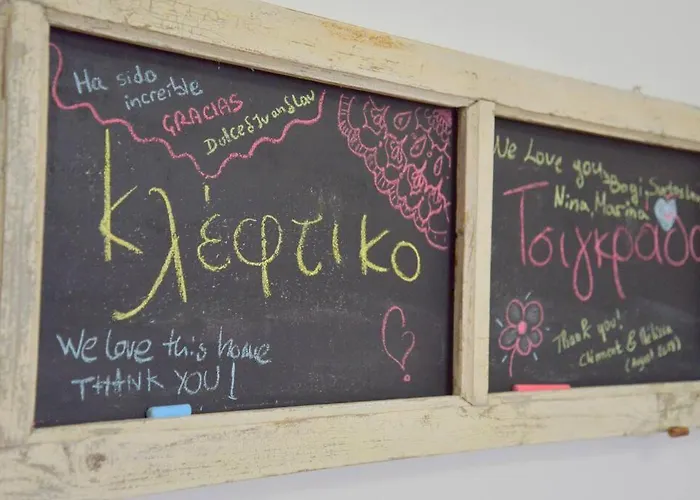 Ha sido
increíble
GRACIAS
Dulce & Juan & Lau
Κλέφτικο
We love this home
THANK YOU!
We Love you
Nina, Marina
Τσιγκράδο
Thank you!
Clément &
(August